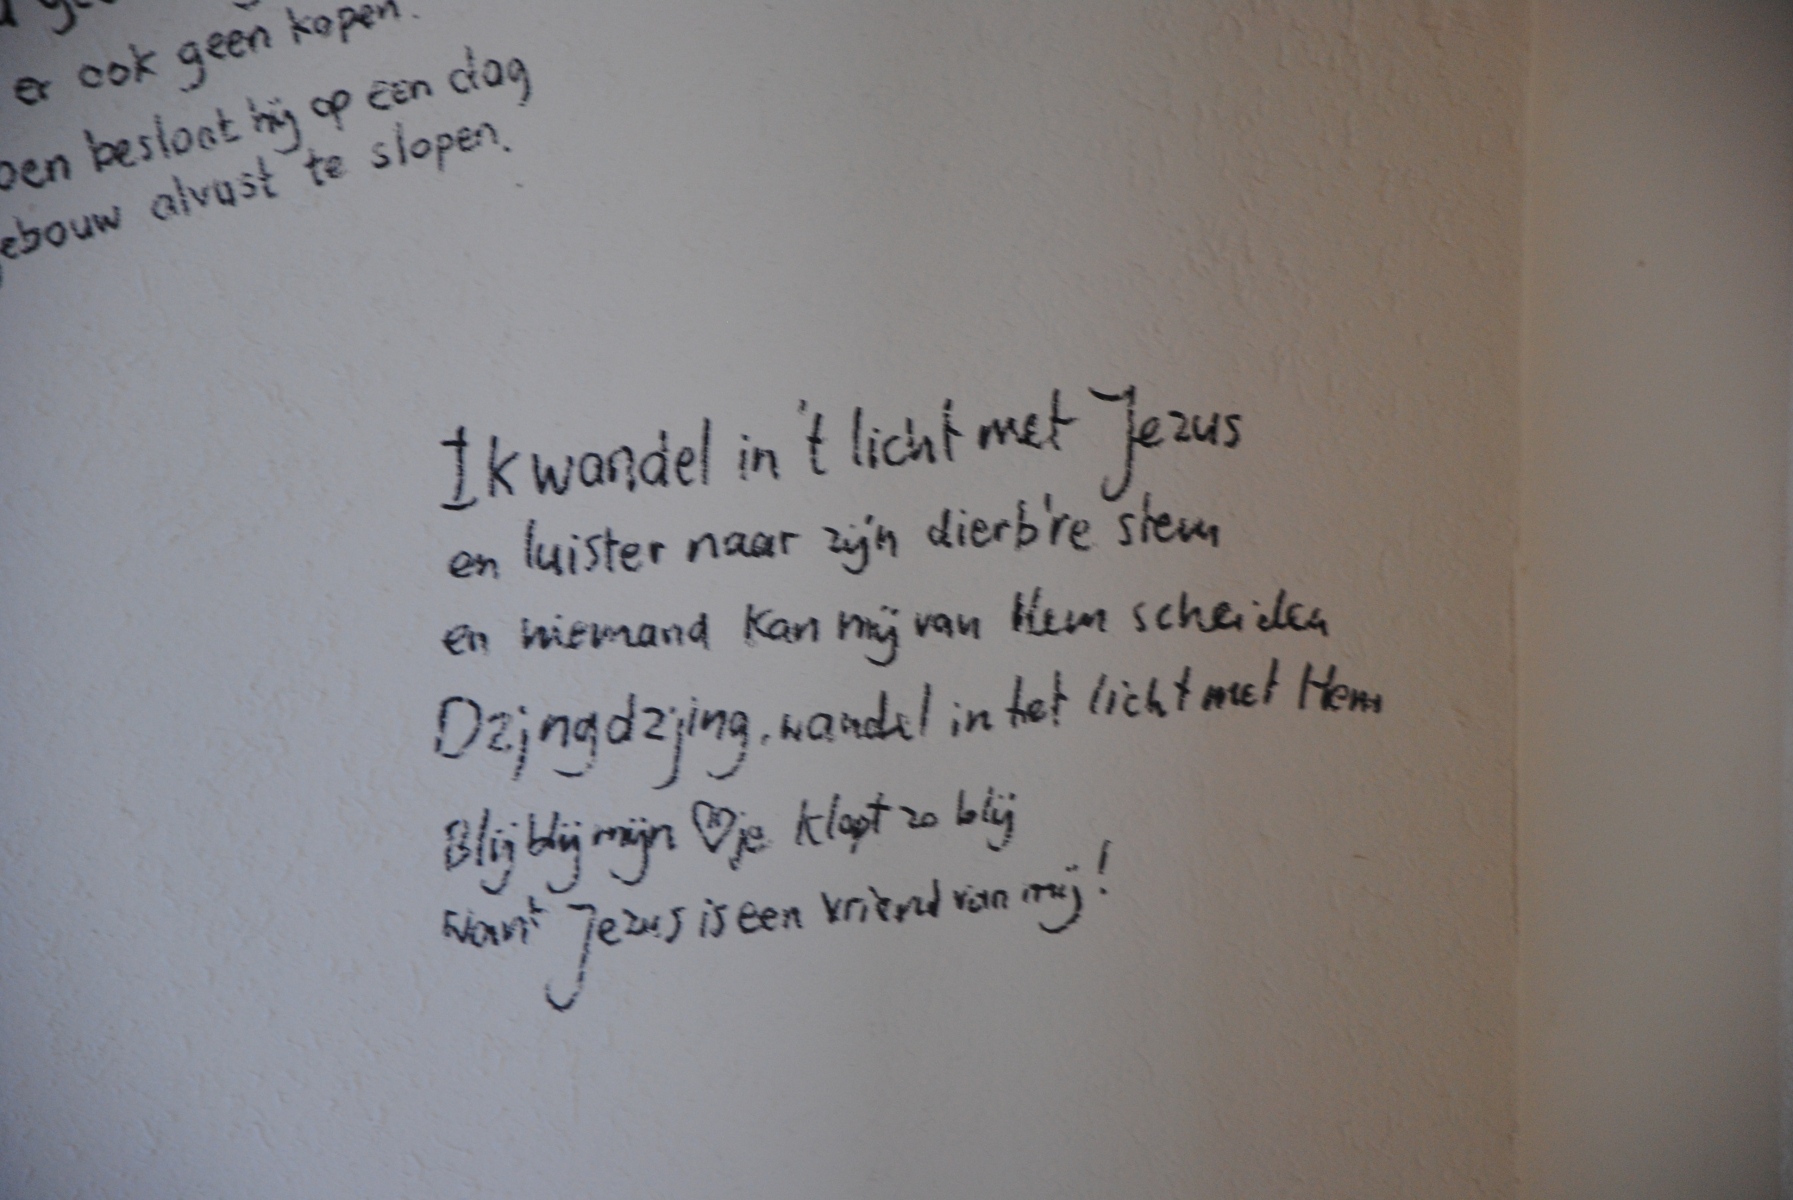 er ook geen kopen.
besloot hij op een dag
alvast te slopen.
Ik wandel in 't licht met Jezus
en luister naar zijn dierb're stem
en niemand kan mij van Hem scheiden
Dzjngdzjing, wandel in het licht met Hem
Blij blij mijn ♡je klopt zo blij
want Jezus is een vriend van mij!